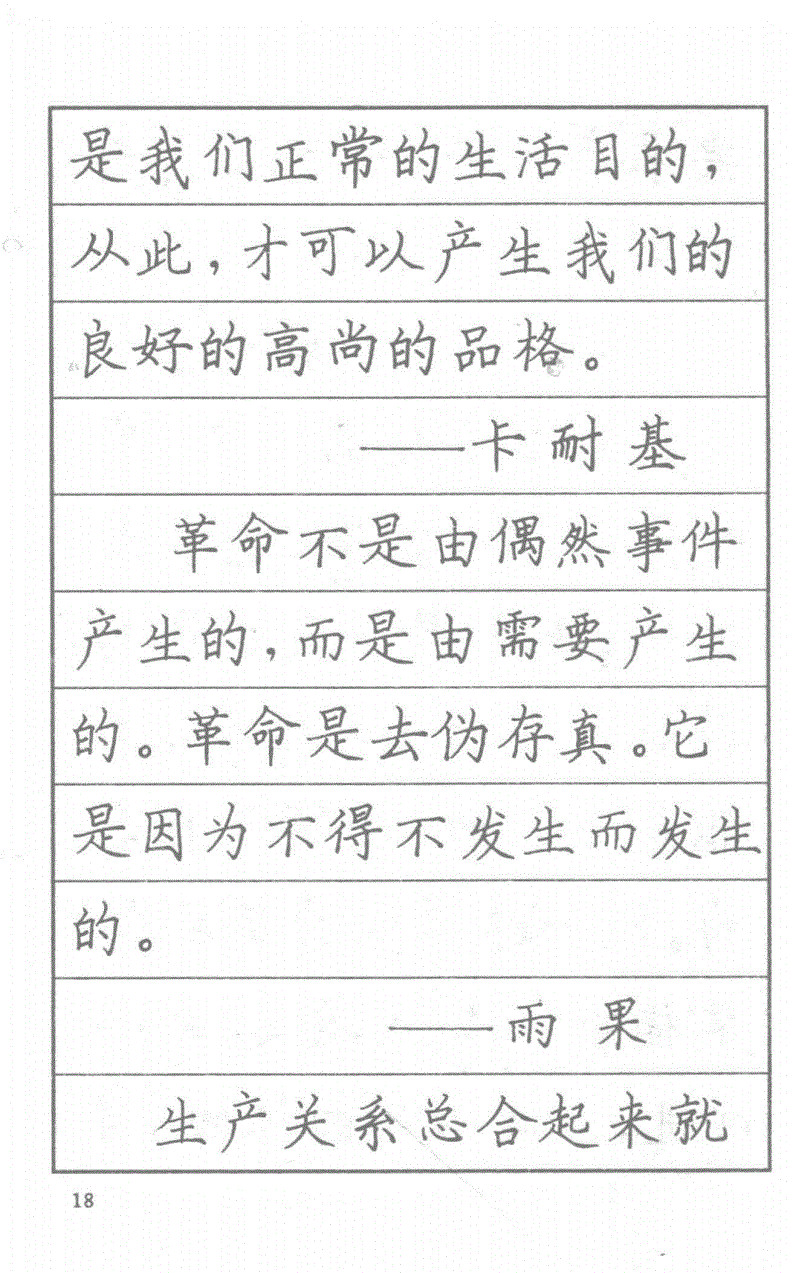 是我们正常的生活目的，
从此，才可以产生我们的
良好的高尚的品格。
——卡耐基
革命不是由偶然事件
产生的，而是由需要产生
的。革命是去伪存真。它
是因为不得不发生而发生
的。
——雨果
生产关系总合起来就
18